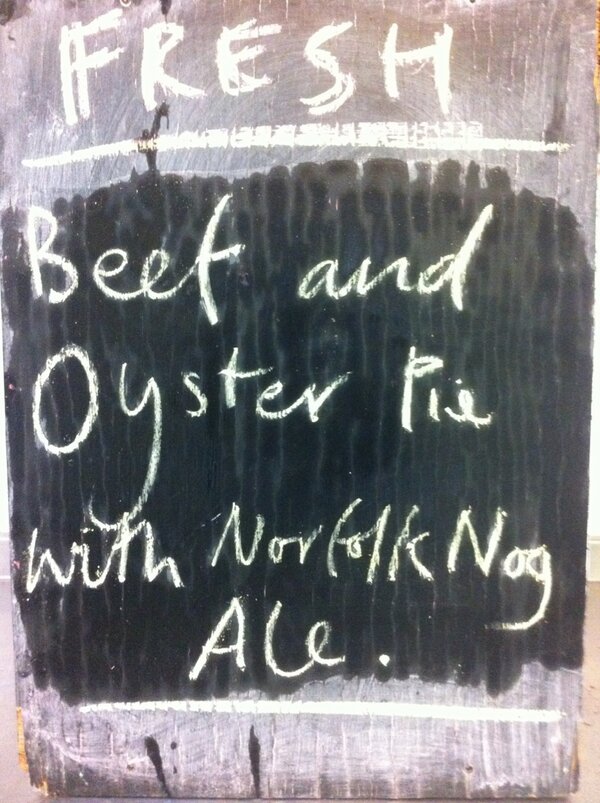 FRESH
Beef and
Oyster Pie
with Norfolk Nog
Ale.